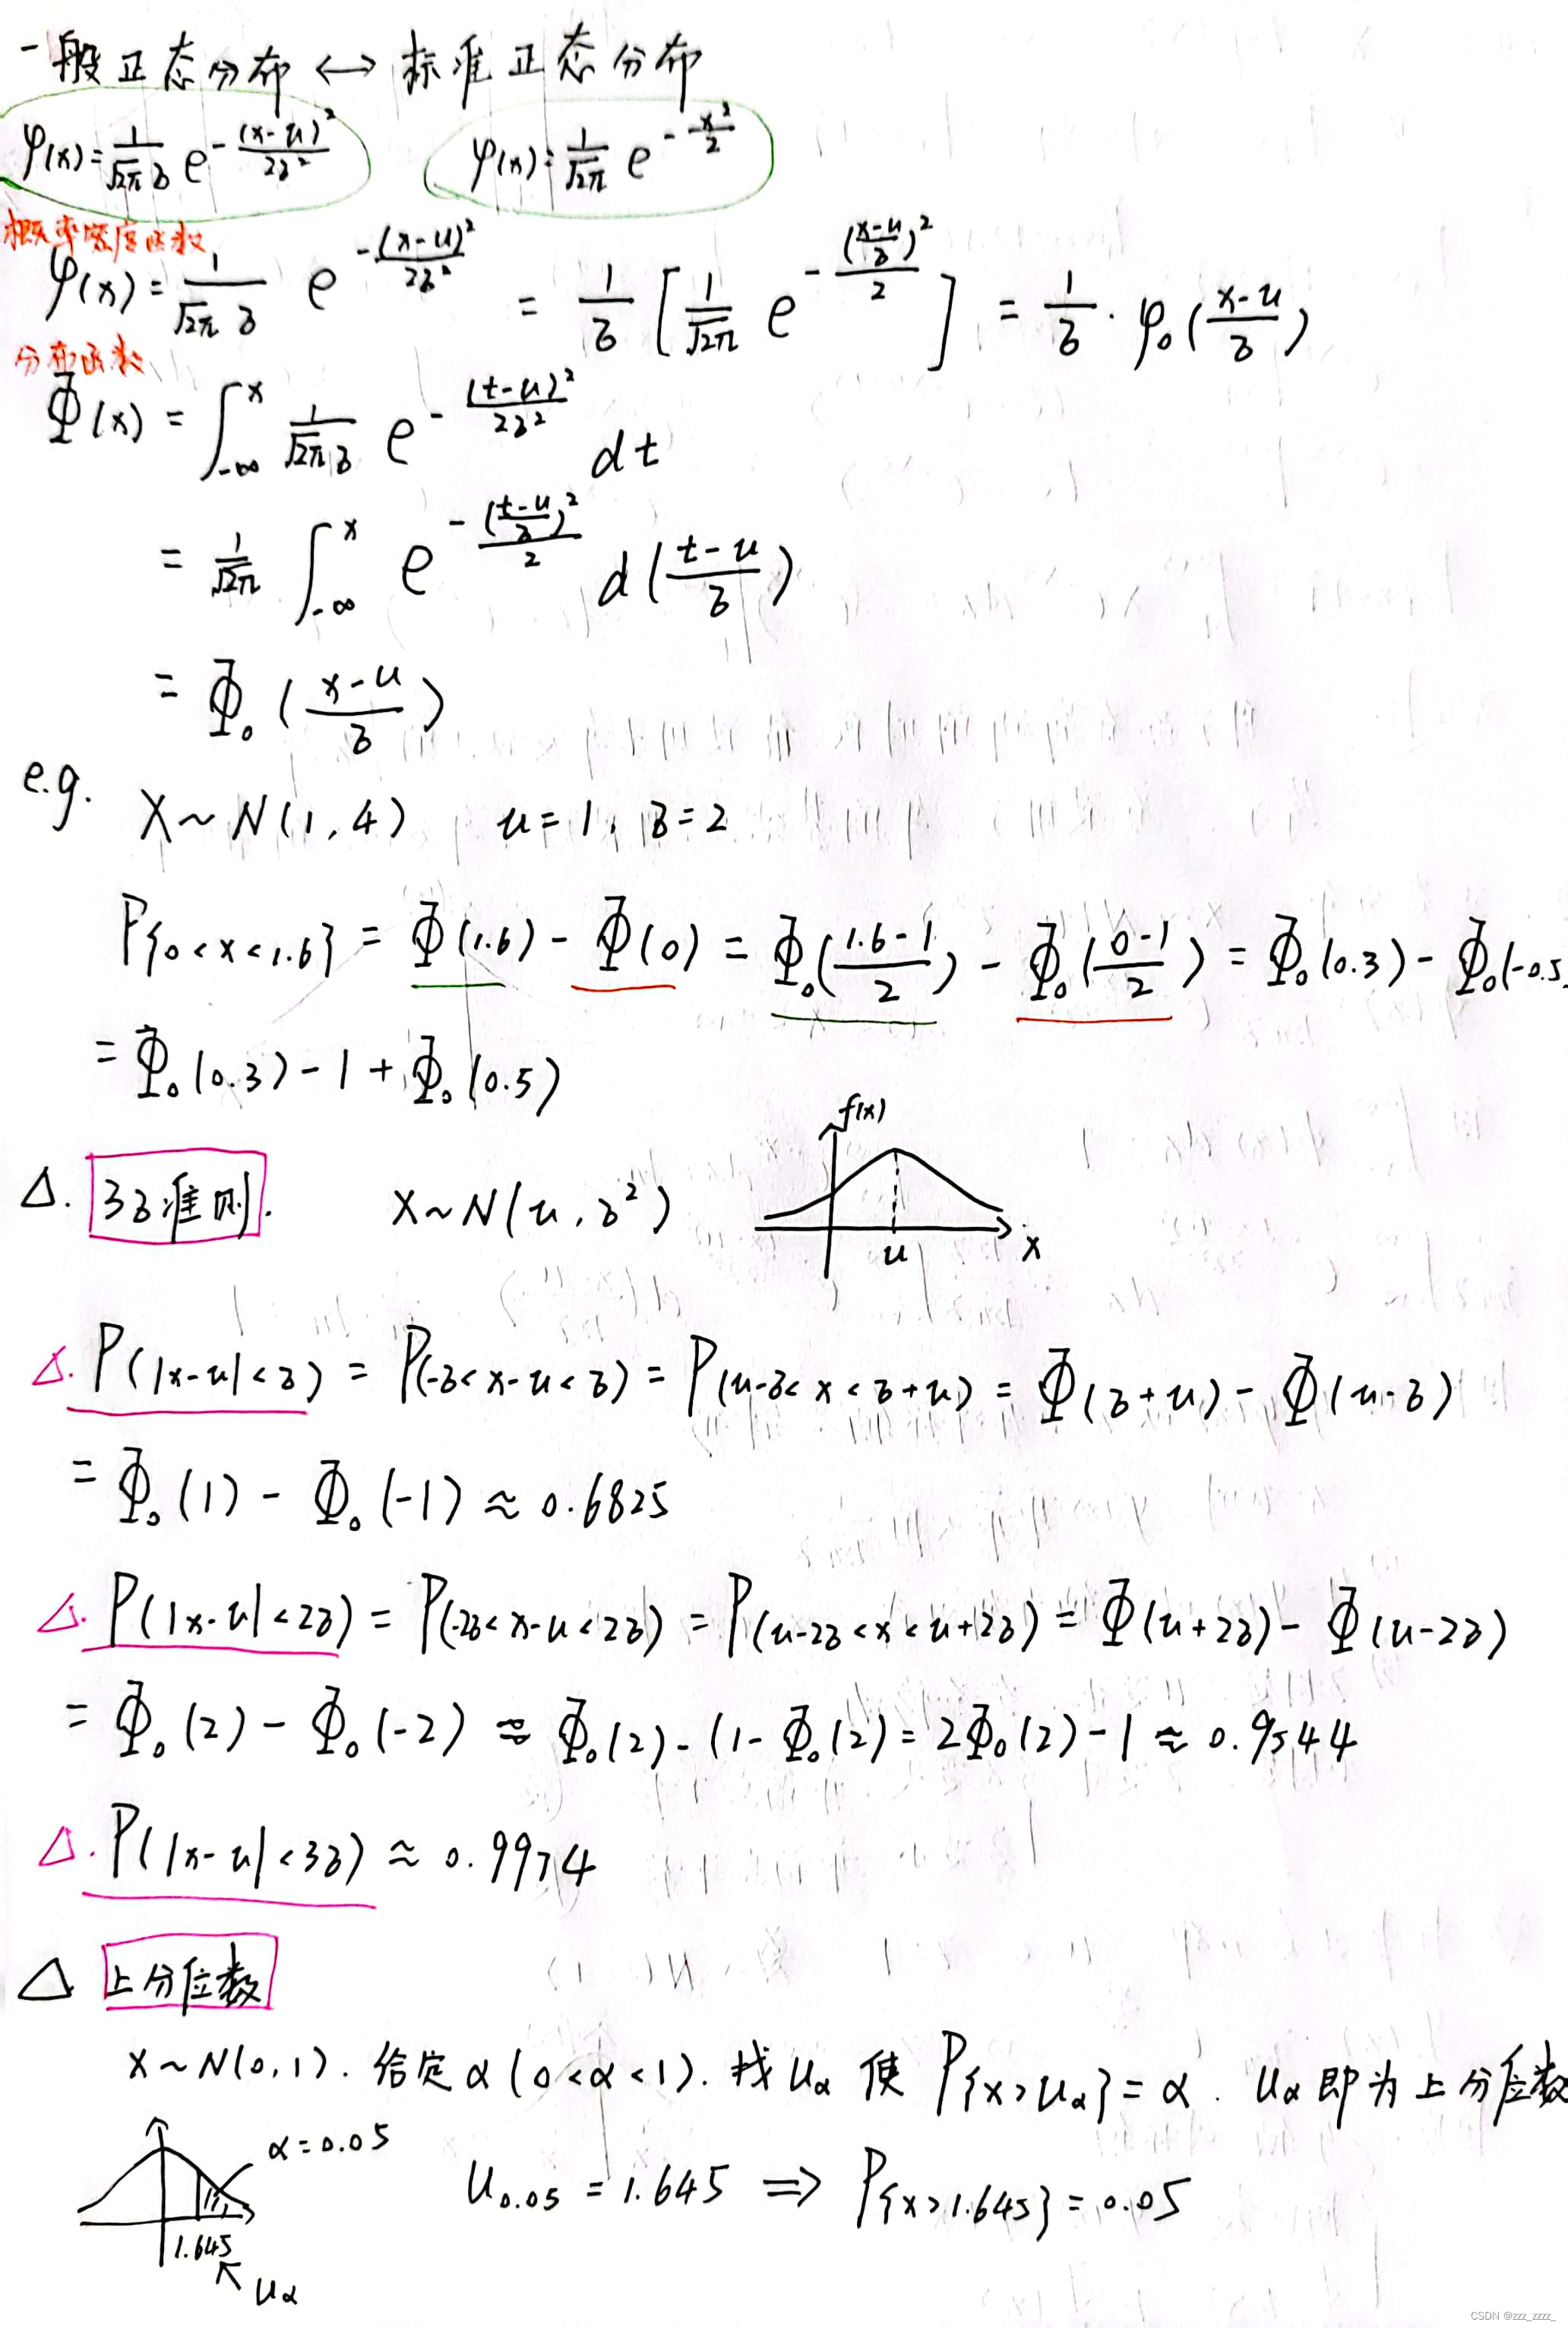 一般正态分布 ↔ 标准正态分布
φ(x)=1/(√2π σ) e^(-(x-u)²/2σ²) φ(x)=1/√2π e^(-x²/2)
概率密度函数
φ(x)=1/(√2π σ) e^(-(x-u)²/2σ²) = 1/σ [1/√2π e^(-((x-u)/σ)²/2)] = 1/σ · φ₀((x-u)/σ)
分布函数
Φ(x) = ∫_{-∞}^{x} 1/(√2π σ) e^(-(t-u)²/2σ²) dt
= 1/√2π ∫_{-∞}^{x} e^(-((t-u)/σ)²/2) d((t-u)/σ)
= Φ₀((x-u)/σ)
e.g. X~N(1,4) u=1, σ=2
P{0<x<1.6} = Φ(1.6) - Φ(0) = Φ₀((1.6-1)/2) - Φ₀((0-1)/2) = Φ₀(0.3) - Φ₀(-0.5
= Φ₀(0.3) - 1 + Φ₀(0.5)
f(x)
△. 3σ准则. X~N(u,σ²)
u x
△. P(|x-u|<σ) = P(-σ<x-u<σ) = P(u-σ<x<σ+u) = Φ(σ+u) - Φ(u-σ)
= Φ₀(1) - Φ₀(-1) ≈ 0.6825
△. P(|x-u|<2σ) = P(-2σ<x-u<2σ) = P(u-2σ<x<u+2σ) = Φ(u+2σ) - Φ(u-2σ)
= Φ₀(2) - Φ₀(-2) ≈ Φ₀(2) - (1-Φ₀(2) = 2Φ₀(2) - 1 ≈ 0.9544
△. P(|x-u|<3σ) ≈ 0.9974
△ 上分位数
X~N(0,1). 给定α(0<α<1). 找uα 使 P{x>uα}=α. uα即为上分位数
α=0.05
u0.05 = 1.645 ⇒ P{x>1.645}=0.05
1.645
uα
CSDN @zzz_zzzz_